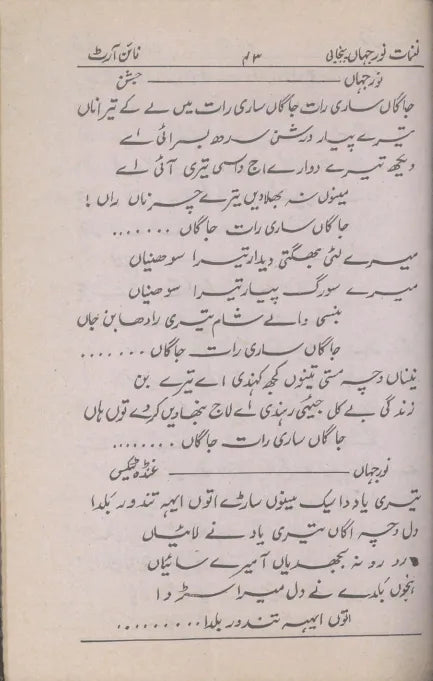 نغمات نور جہاں پنجابی ۳۴ فائن آرٹ
نور جہاں جشن
جاگاں ساری رات جاگاں ساری رات میں لے کے تیرا ناں
تیرے پیار درشن سدھ بسرائی اے
ویکھ تیرے دوارے اج داسی تیری آئی اے
مینوں نہ بھلاویں تیرے چرناں راں!
جاگاں ساری رات جاگاں .......
میرے لئی بھگتی دیدار تیرا سوھنیاں
میرے سورگ پیار تیرا سوھنیاں
بنسی والے شام تیری رادھا بن جاں
جاگاں ساری رات جاگاں .......
نیناں وچہ مستی تینوں کجھ کہندی اے تیرے بن
زندگی بے کل جیئی رہندی اے لاج نبھاویں کردے توں ہاں
جاگاں ساری رات جاگاں ........
نور جہاں غنڈہ ٹیکس
تیری یاد دا سیک مینوں ساڑے اتوں ایہہ تندور بلدا
دل وچہ اگاں تیری یاد نے لائیاں
رو رو نہ بجھدیاں آ میرے سائیاں
ہنجوں بلدے نے دل میرا سڑدا
اتوں ایہہ تندور بلدا .........